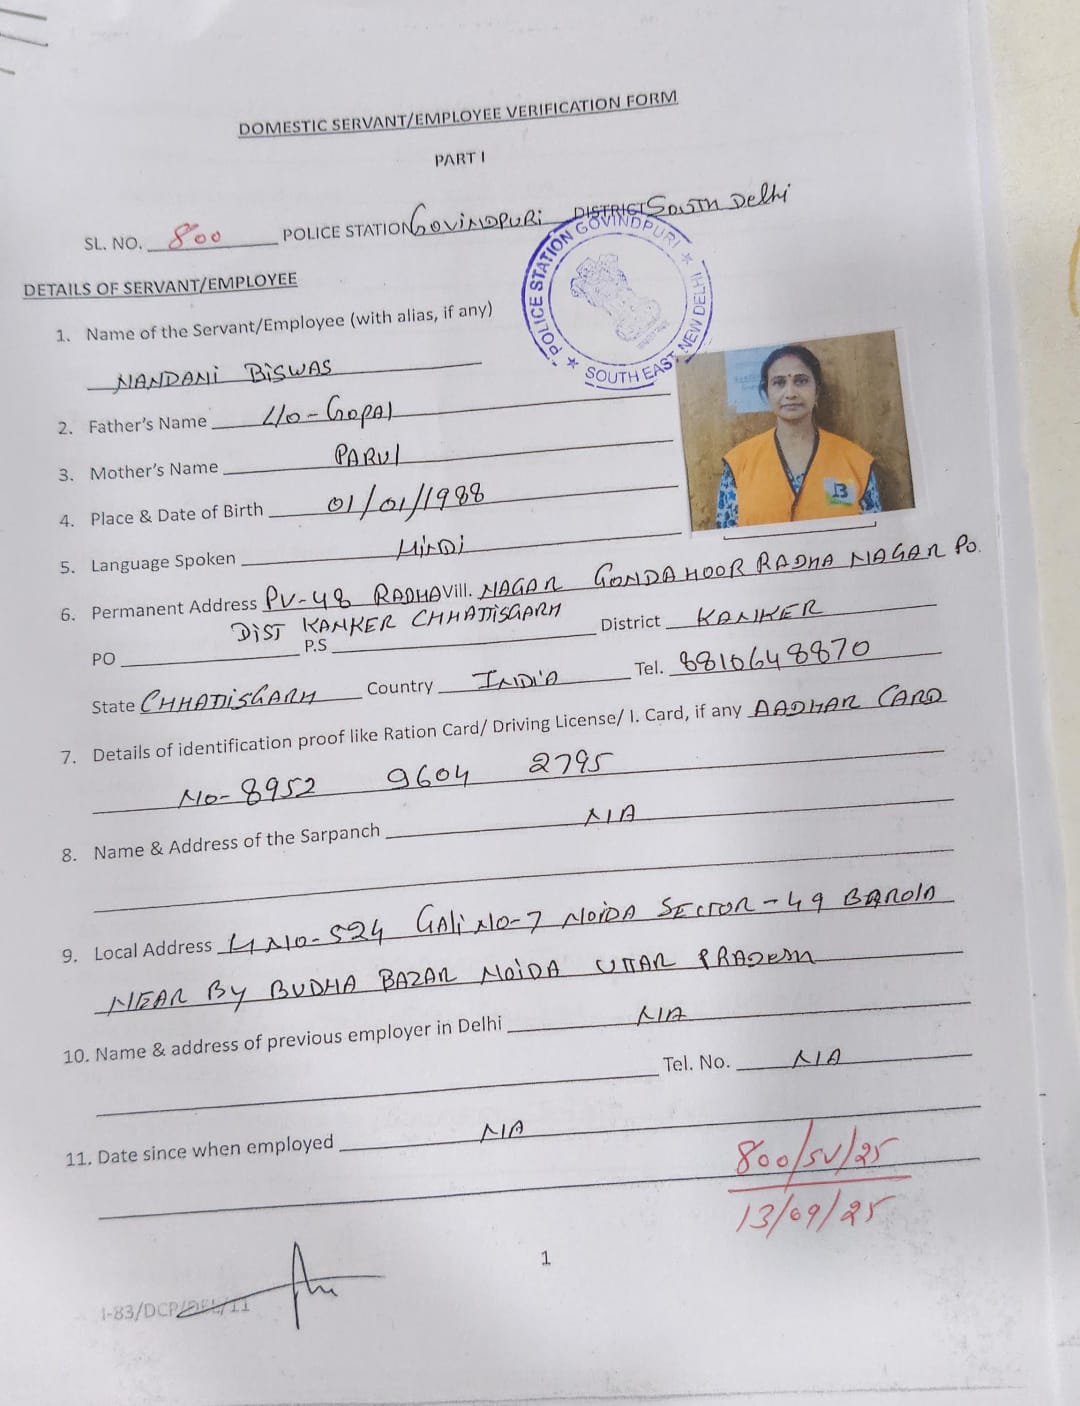 DOMESTIC SERVANT/EMPLOYEE VERIFICATION FORM
PART I
SL. NO. 800 POLICE STATION GOVINDPURI DISTRICT SOUTH Delhi
POLICE STATION GOVINDPURI * SOUTH EAST, NEW DELHI *
DETAILS OF SERVANT/EMPLOYEE
1. Name of the Servant/Employee (with alias, if any)
NANDANI BISWAS
2. Father's Name L/o - GOPAl
3. Mother's Name PARUl
4. Place & Date of Birth 01/01/1988
5. Language Spoken HINDI
6. Permanent Address PV-48 RADHA Vill. NAGAR GONDAHOOR RADHA NAGAR PO.
DIST KANKER CHHATISGARH
PO P.S District KANKER
State CHHATISGARH Country INDIA Tel. 8810648870
7. Details of identification proof like Ration Card/ Driving License/ I. Card, if any AADHAR CARD
NO- 8952 9604 2795
8. Name & Address of the Sarpanch NIA
9. Local Address H NO-524 GALI NO-7 NOIDA SECTOR-49 BAROLA
NEAR BY BUDHA BAZAR NOIDA UTTAR PRADESH
10. Name & address of previous employer in Delhi NIA
Tel. No. NIA
11. Date since when employed NIA
800/SV/25
13/09/25
1
I-83/DCP/DEL/11